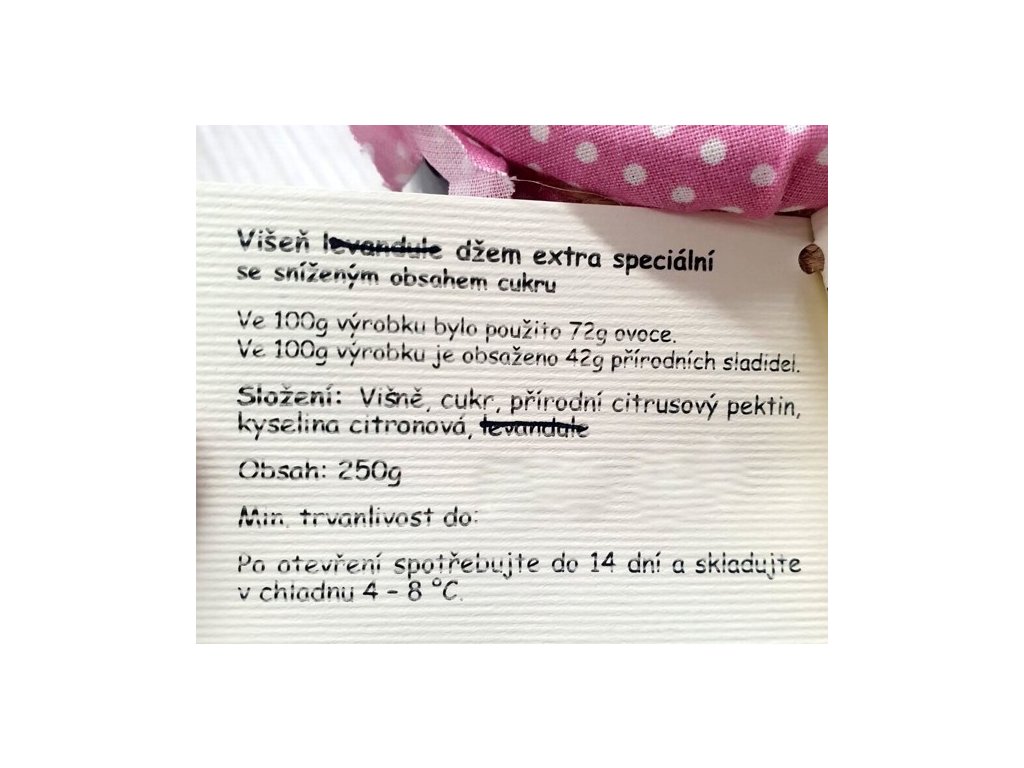 Višeň levandule džem extra speciální
se sníženým obsahem cukru
Ve 100g výrobku bylo použito 72g ovoce.
Ve 100g výrobku je obsaženo 42g přírodních sladidel.
Složení: Višně, cukr, přírodní citrusový pektin,
kyselina citronová, levandule
Obsah: 250g
Min. trvanlivost do:
Po otevření spotřebujte do 14 dní a skladujte
v chladnu 4 - 8 °C.